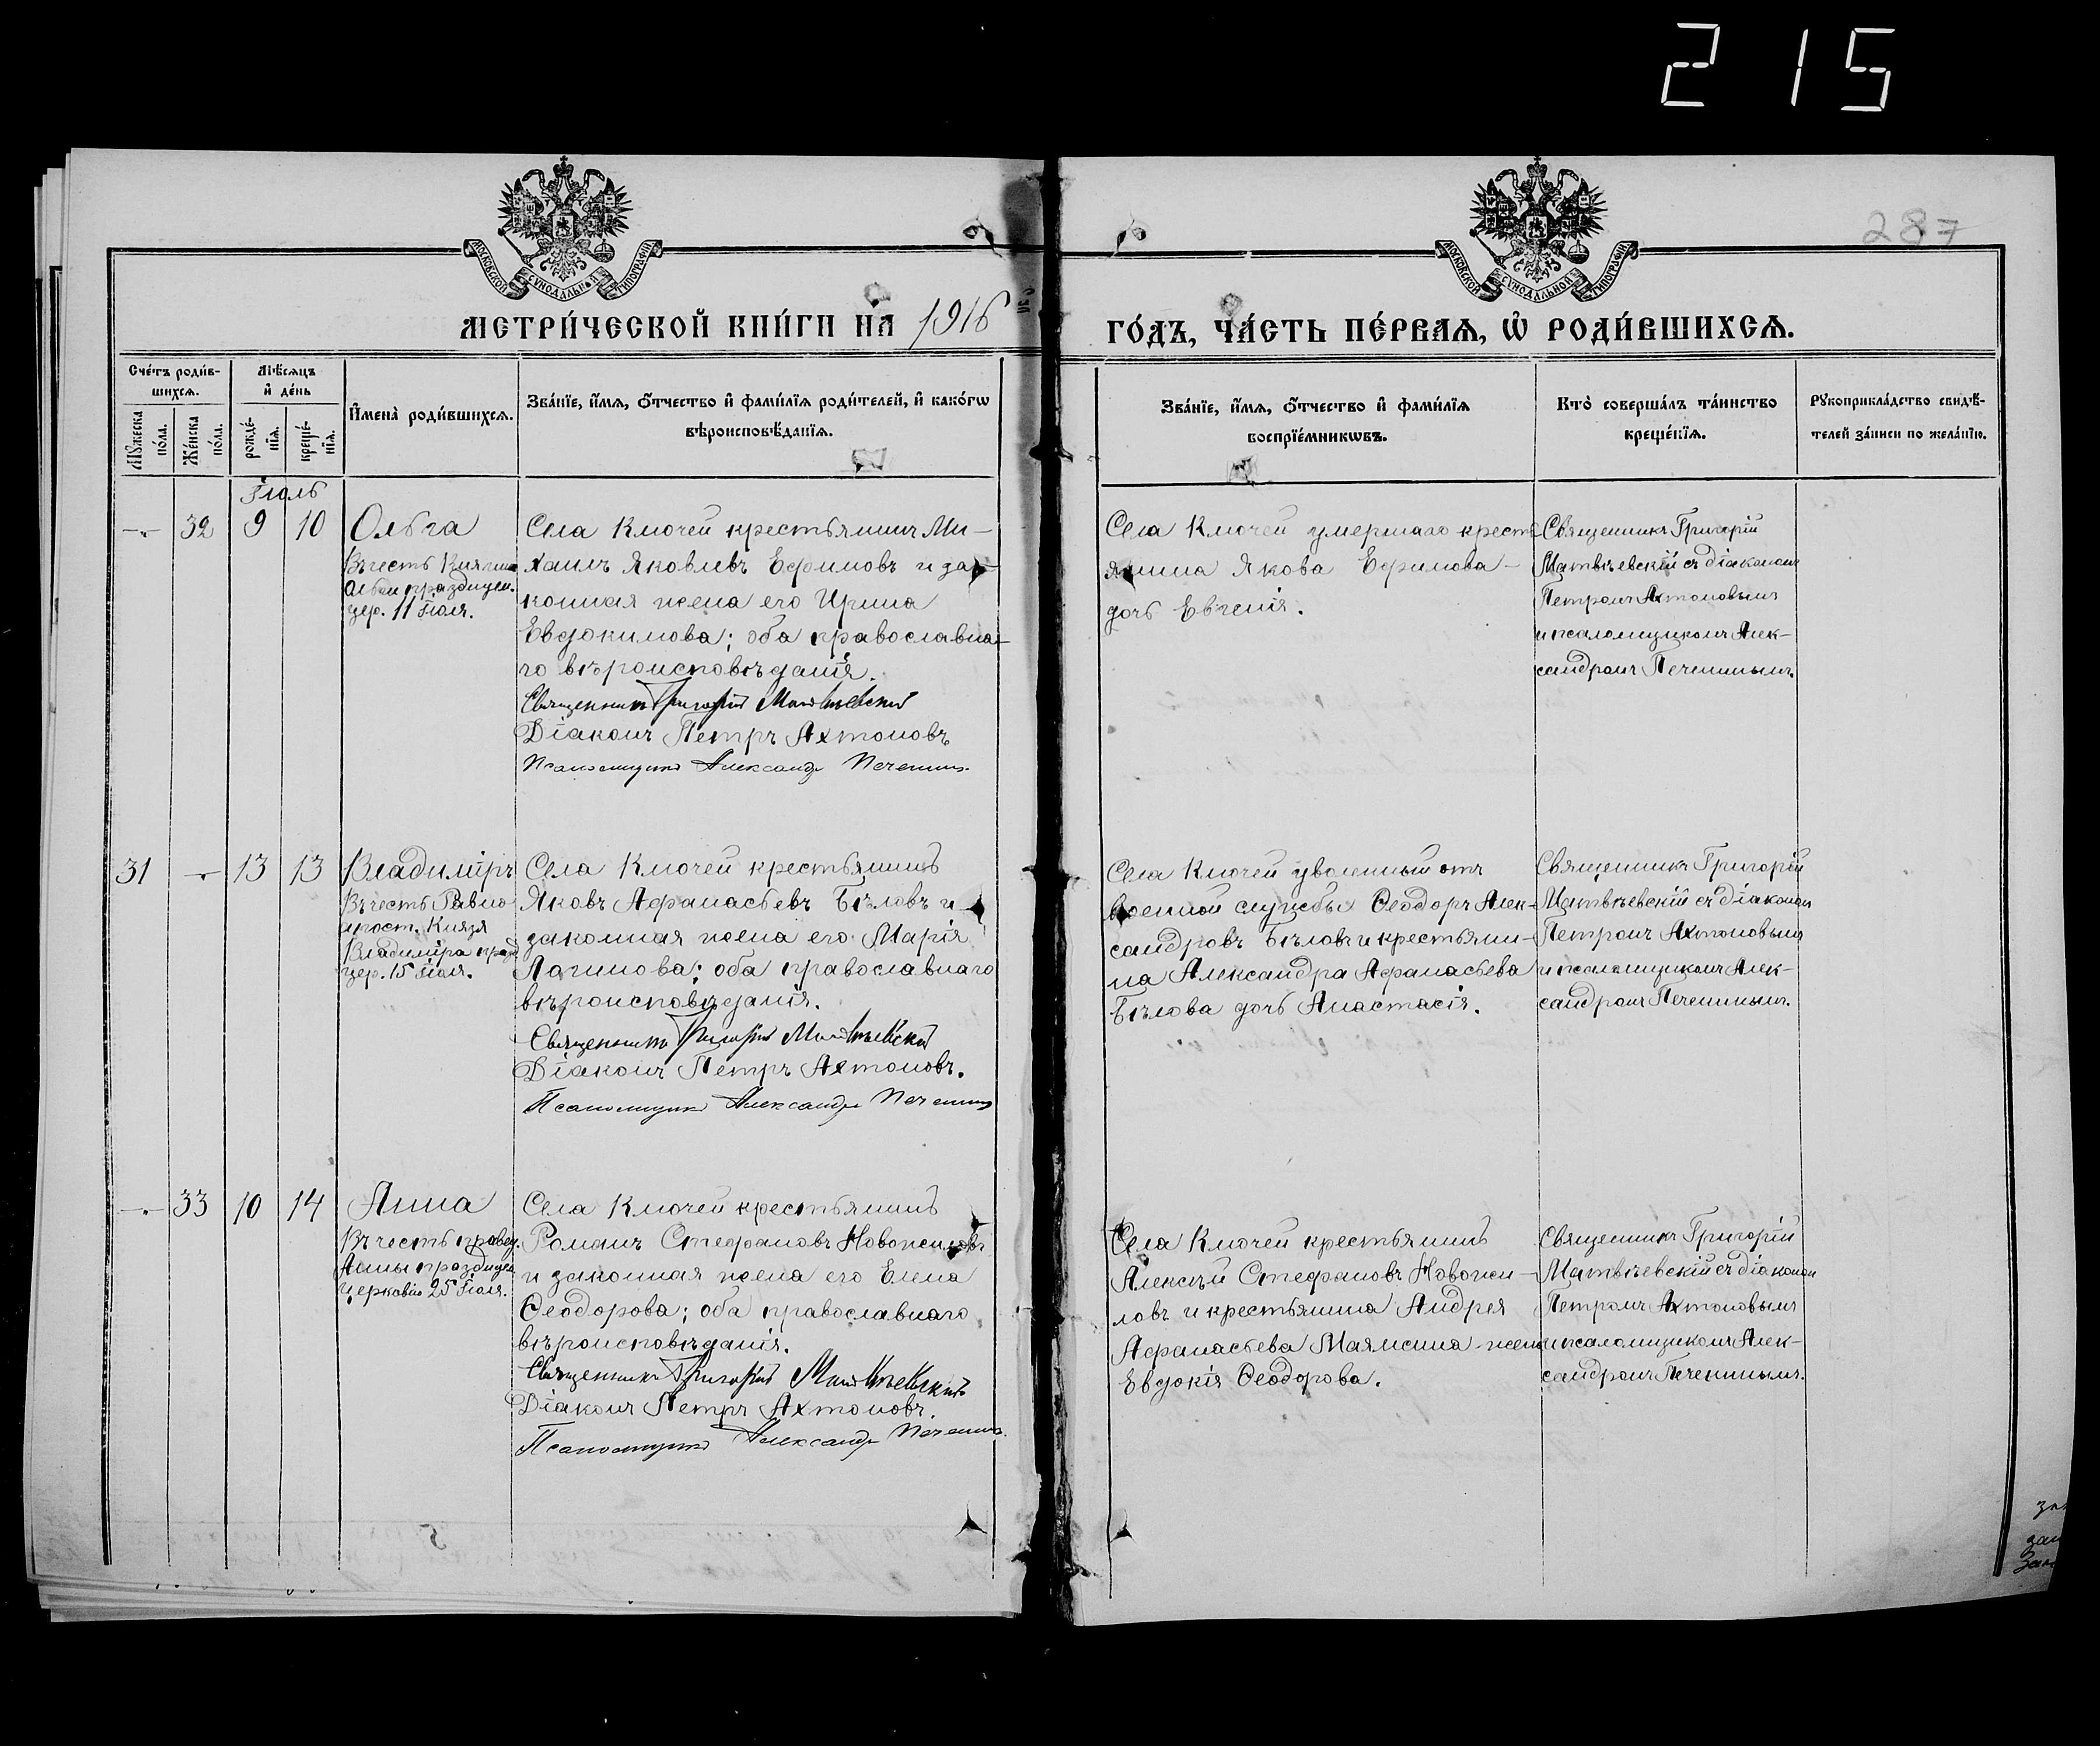 215
МОСКОВСКОЙ СѴНОДАЛЬНОЙ ТИПОГРАФІИ
МОСКОВСКОЙ СѴНОДАЛЬНОЙ ТИПОГРАФІИ
287
МЕТРИ́ЧЕСКОЙ КНИ́ГИ НА 1916
ГО́ДЪ, ЧА́СТЬ ПЕ́РВАѦ, Ѡ РОДИ́ВШИХСѦ.
Сче́тъ роди́в-
шихсѧ.
Мѣ́сѧцъ
и҆ де́нь
Мꙋ́жеска
по́ла.
Же́нска
по́ла.
рожде́-
нїѧ.
креще́-
нїѧ.
И҆мена̀ роди́вшихсѧ.
Зва́нїе, и҆́мѧ, ѻ҆́тчество и҆ фами́лїѧ роди́телей, и҆ како́гѡ
вѣроисповѣ́данїѧ.
Зва́нїе, и҆́мѧ, ѻ҆́тчество и҆ фами́лїѧ
воспрїе́мникѡвъ.
Кто̀ соверша́лъ та́инство
креще́нїѧ.
Рꙋкоприкла́дство свидѣ́-
телей за́писи по жела́нїю.
Іюль
32 9 10 Ольга
Въ честь Княгини
Ольги празднуем.
цер. 11 Іюля.
Села Ключей крестьянинъ Ми-
хаилъ Яковлевъ Ефимовъ и за-
конная жена его Ирина
Евдокимова; оба православна-
го вѣроисповѣданія.
Священникъ Григорій Матвѣевскій
Діаконъ Петръ Ахтоновъ
Псаломщикъ Александръ Печенинъ.
Села Ключей умершаго кресть-
янина Якова Ефимова -
дочь Евгенія.
Священникъ Григорій
Матвѣевскій съ діакономъ
Петромъ Ахтоновымъ
и псаломщикомъ Алек-
сандромъ Печенинымъ.
31 13 13 Владиміръ
Въ честь Равно-
апост. Князя
Владиміра празд.
цер. 15 Іюля.
Села Ключей крестьянинъ
Яковъ Афанасьевъ Бѣловъ и
законная жена его Марія
Логинова; оба православнаго
вѣроисповѣданія.
Священникъ Григорій Матвѣевскій
Діаконъ Петръ Ахтоновъ.
Псаломщикъ Александръ Печенинъ
Села Ключей уволенный отъ
военной службы Ѳеодоръ Алек-
сандровъ Бѣловъ и крестьяни-
на Александра Афанасьева
Бѣлова дочь Анастасія.
Священникъ Григорій
Матвѣевскій съ діакономъ
Петромъ Ахтоновымъ
и псаломщикомъ Алек-
сандромъ Печенинымъ.
33 10 14 Анна
Въ честь правед.
Анны празднуем.
церковію 25 Іюля.
Села Ключей крестьянинъ
Романъ Стефановъ Новожиловъ
и законная жена его Елена
Ѳеодорова; оба православнаго
вѣроисповѣданія.
Священникъ Григорій Матвѣевскій
Діаконъ Петръ Ахтоновъ.
Псаломщикъ Александръ Печенинъ.
Села Ключей крестьянинъ
Алексѣй Стефановъ Новожи-
ловъ и крестьянина Андрея
Афанасьева Маямсина жена
Евдокія Ѳеодорова.
Священникъ Григорій
Матвѣевскій съ діакономъ
Петромъ Ахтоновымъ
и псаломщикомъ Алек-
сандромъ Печенинымъ.